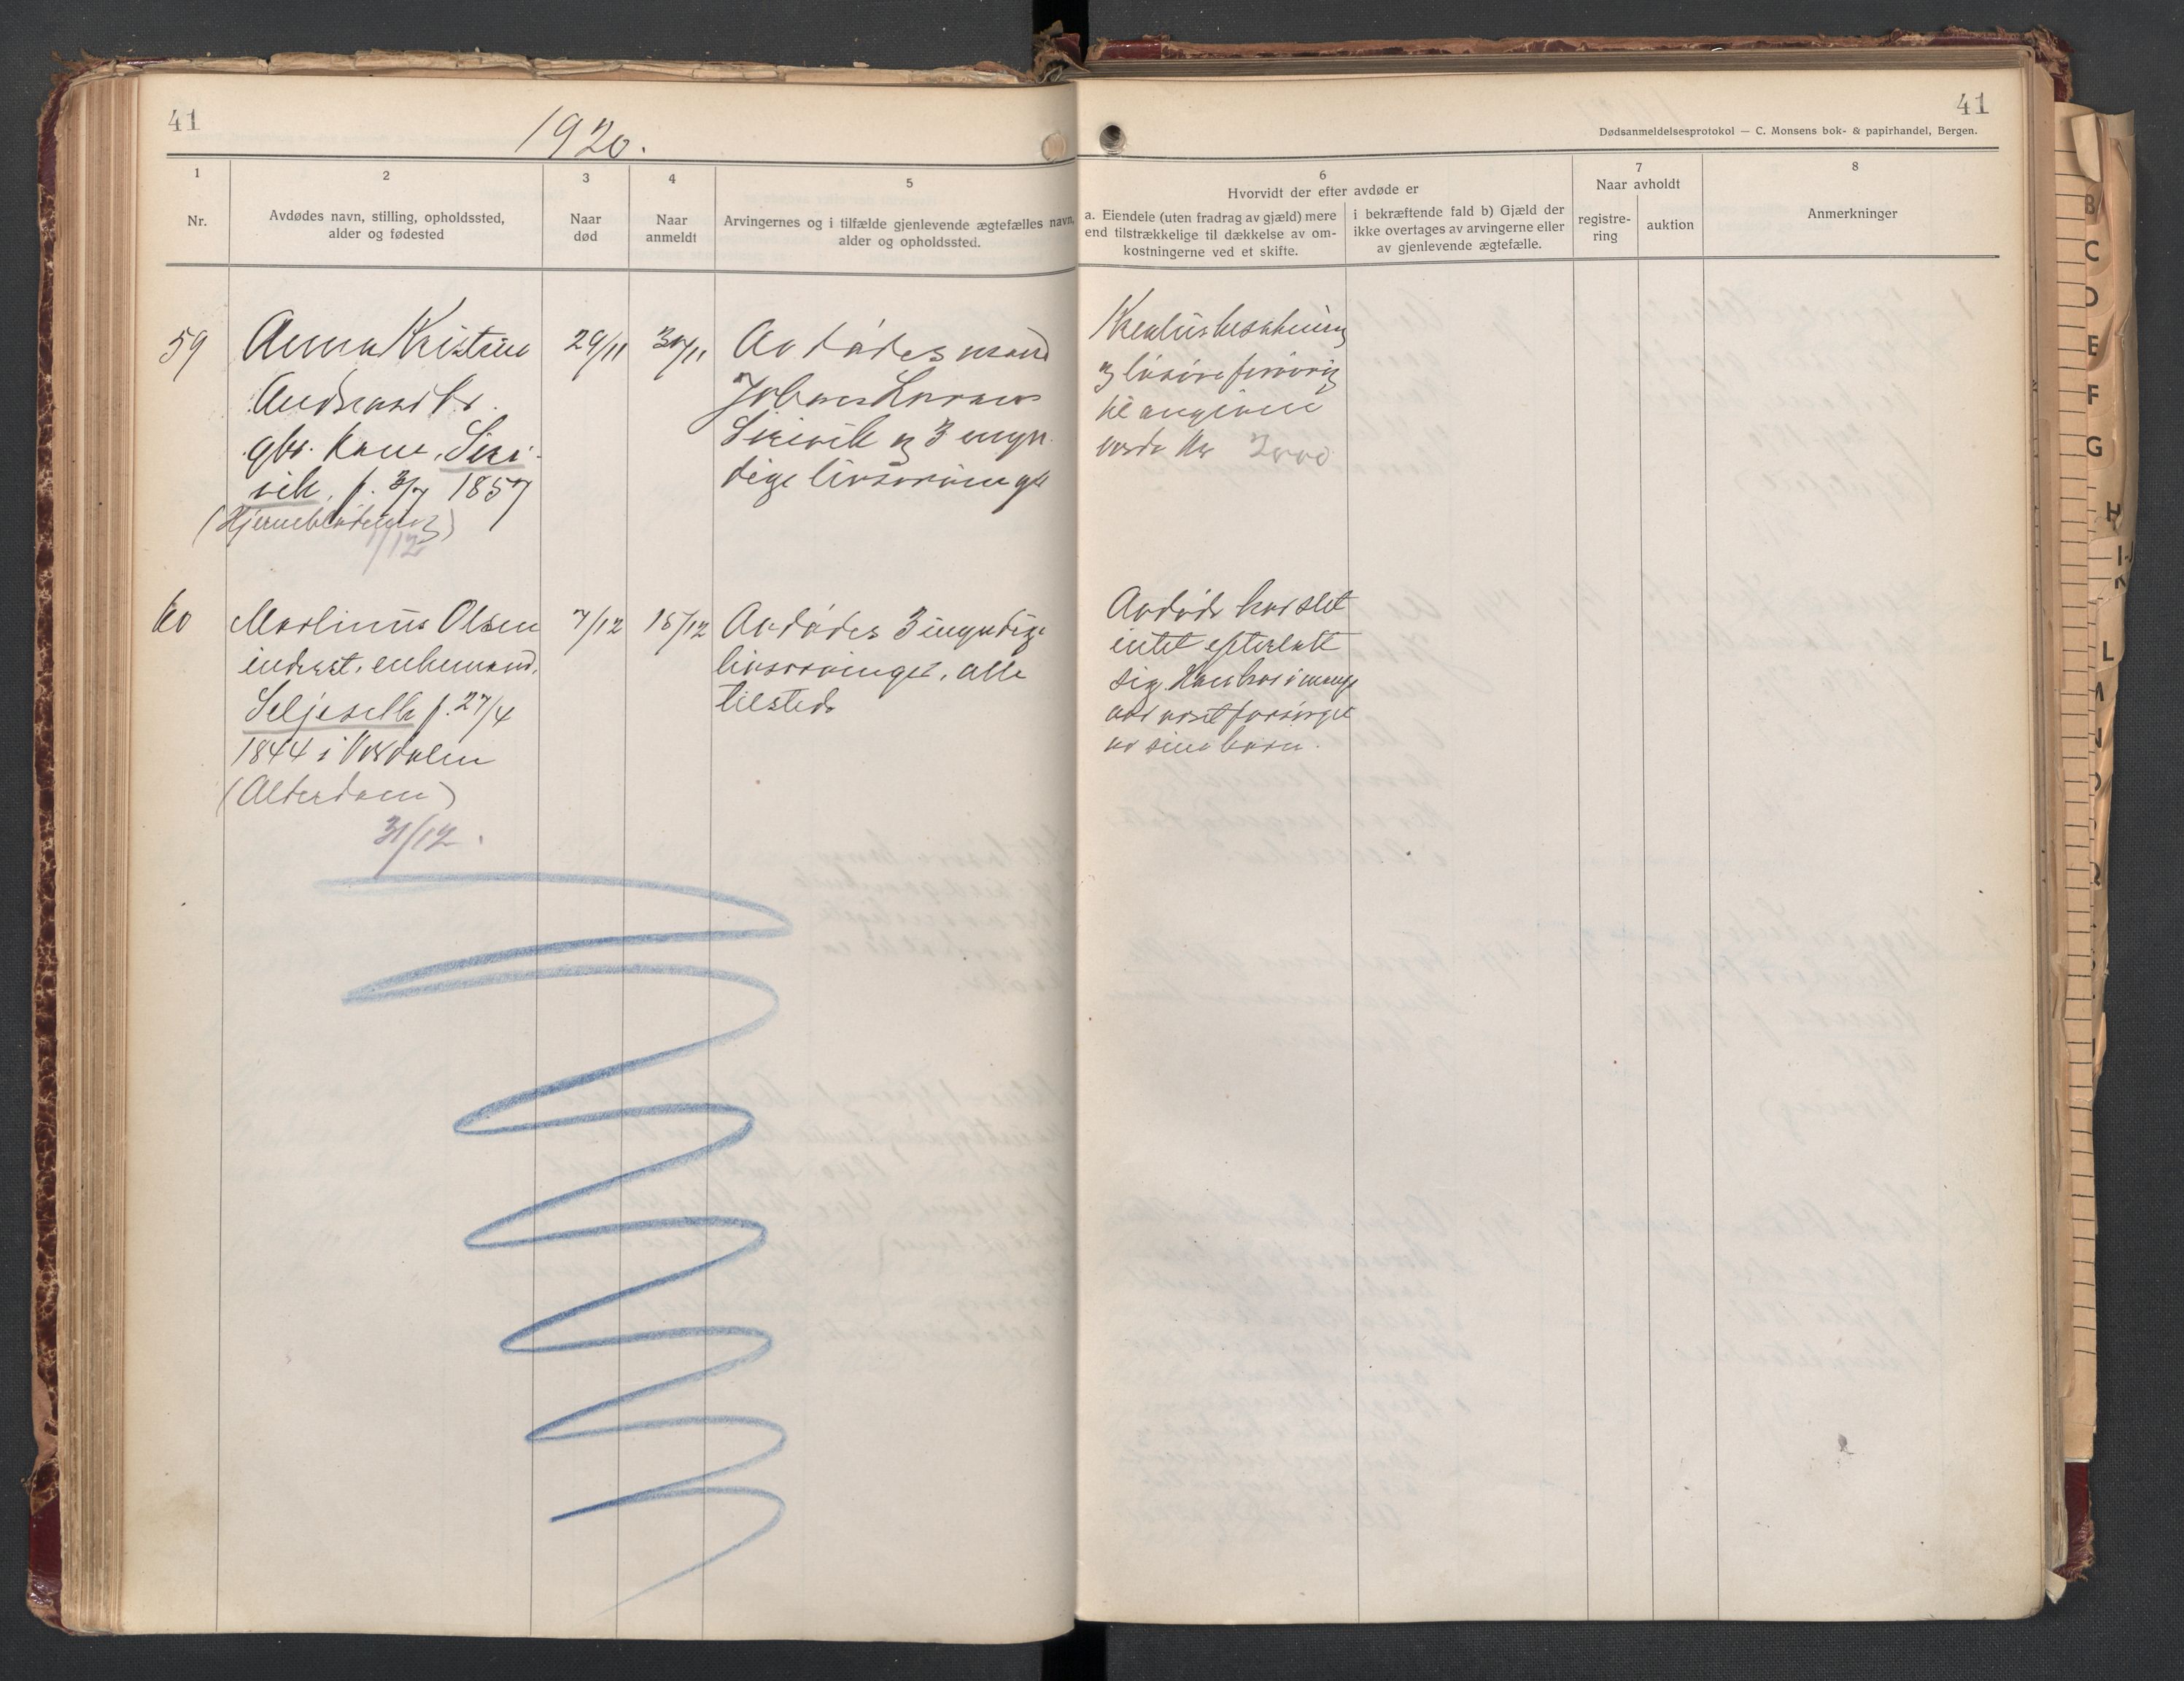 41
1920.
1
2
3
4
5
Nr.
Avdødes navn, stilling, opholdssted,
alder og fødested
Naar
død
Naar
anmeldt
Arvingernes og i tilfælde gjenlevende ægtefælles navn,
alder og opholdssted.
59
Anna Kristine
gbr. kone,
f. 3/7 1857
(Hjerneblødning)
1/12
29/11
30/11
Avdødes mand
og 3 myn-
dige livsarvinger
60
Martinus Olsen
inderst, enkemand,
f. 27/4
1844 i Verdalen
(Alderdom)
31/12.
7/12
15/12
Avdødes 3 myndige
livsarvinger, alle
tilstede
41
Dødsanmeldelsesprotokol — C. Monsens bok- & papirhandel, Bergen.
6
Hvorvidt der efter avdøde er
a. Eiendele (uten fradrag av gjæld) mere
end tilstrækkelige til dækkelse av om-
kostningerne ved et skifte.
i bekræftende fald b) Gjæld der
ikke overtages av arvingerne eller
av gjenlevende ægtefælle.
7
Naar avholdt
registre-
ring
auktion
8
Anmerkninger
Kreatursbesætning
og løsøre forøvrig
til angiven
værdi Kr 2000
Avdøde har slet
intet efterlatt
sig. Han har i mange
aar været forsørget
av sine barn.
B
C
D
E
F
G
H
I-J
K
L
M
N
O